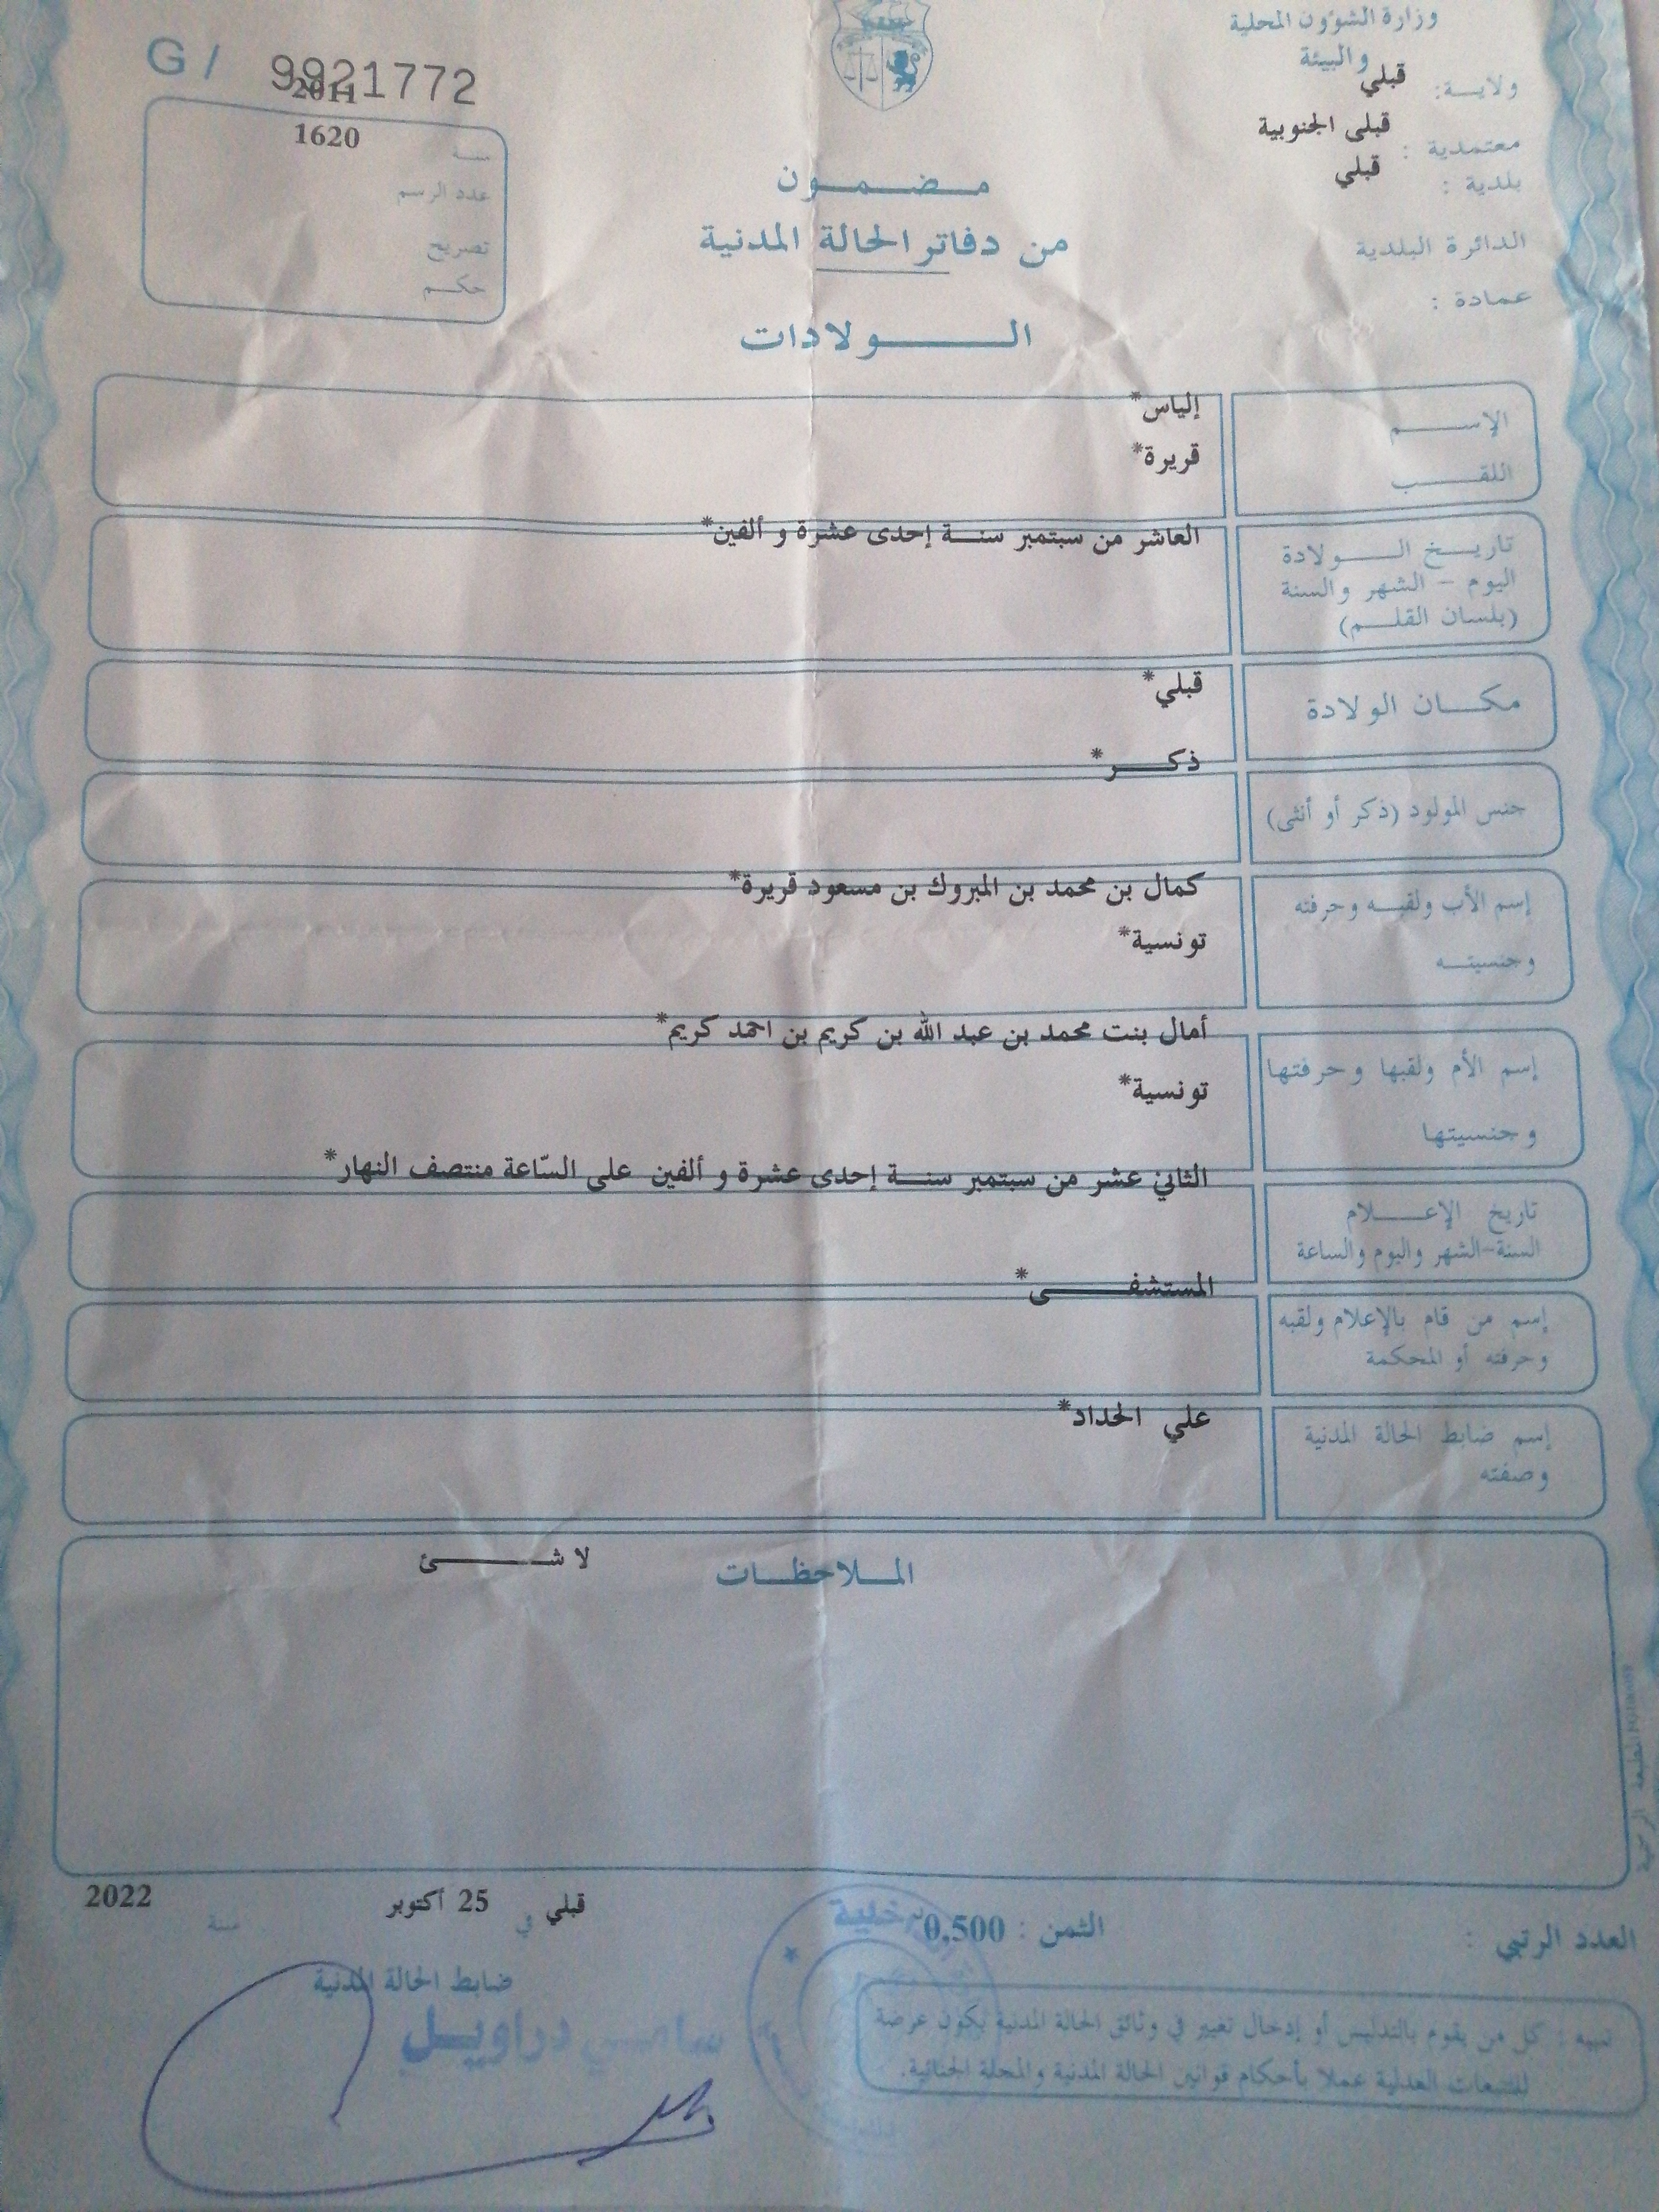 وزارة الشؤون المحلية
والبيئة
ولايـــة: قبلي
معتمدية : قبلى الجنوبية
بلدية : قبلي
الدائرة البلدية
عمادة :
G / 9921772
2011
1620
سنــة
عدد الرسم
تصريح
حكـــم
مـــضـــمـــون
من دفاتر الحالة المدنية
الـــــولادات
الإســــــم إلياس*
اللقــــــب قريرة*
تاريــــخ الـــــولادة العاشر من سبتمبر سنــة إحدى عشرة و ألفين*
اليوم - الشهر والسنة
(بلسان القلـــم)
مكـــان الولادة قبلي*
جنس المولود (ذكر أو أنثى) ذكـــر*
إسم الأب ولقبـــه وحرفته كمال بن محمد بن المبروك بن مسعود قريرة*
وجنسيتـــه تونسية*
إسم الأم ولقبها وحرفتها أمال بنت محمد بن عبد الله بن كريم بن احمد كريم*
وجنسيتها تونسية*
تاريخ الإعـــــلام الثاني عشر من سبتمبر سنــة إحدى عشرة و ألفين على السّاعة منتصف النهار*
السنة-الشهر واليوم والساعة
إسم من قام بالإعلام ولقبه المستشفـــــى*
وحرفته أو المحكمة
إسم ضابط الحالة المدنية علي الحداد*
وصفته
المــلاحظــات لا شـــــئ
العدد الرتبي :
الثمن : 0,500
قبلي في 25 أكتوبر سنة 2022
ضابط الحالة المدنية
دراويـــل
تنبيه : كل من يقوم بالتدليس أو إدخال تغيير في وثائق الحالة المدنية يكون عرضة
للتتبعات العدلية عملا بأحكام قوانين الحالة المدنية والمجلة الجنائية.